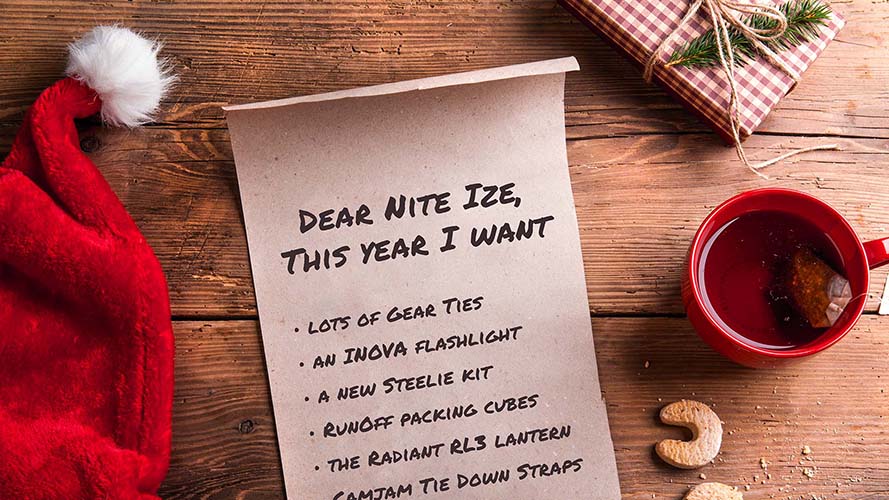 Dear Nite Ize,
This year I want
• lots of Gear Ties
• an INOVA flashlight
• a new Steelie kit
• RunOff packing cubes
• the Radiant RL3 lantern
CamJam Tie Down Straps